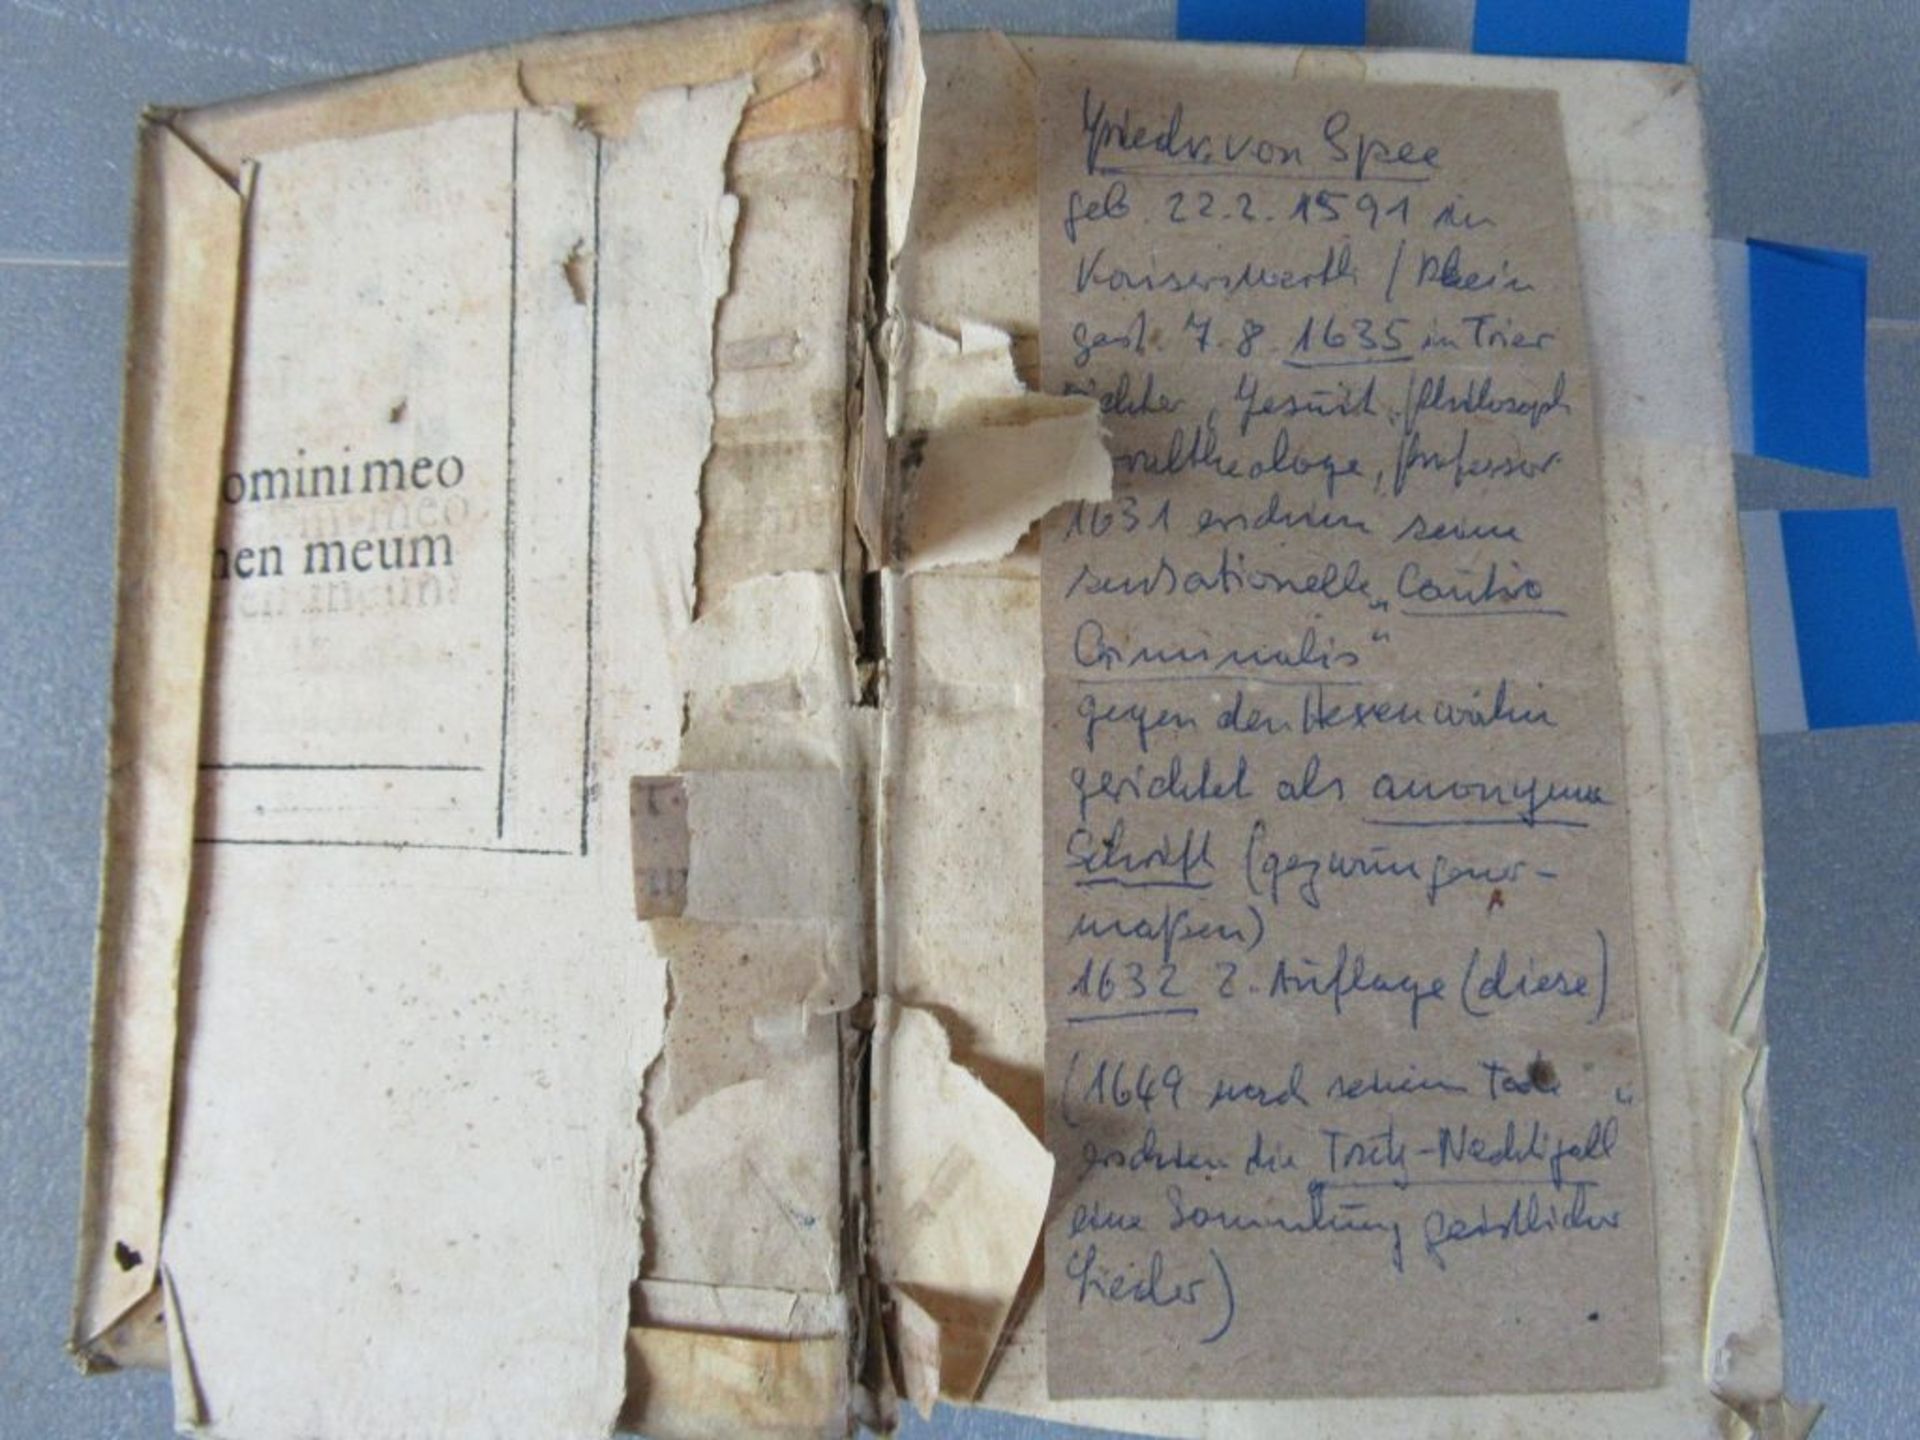 omini meo
nen meum
Friedr. von Spee
geb. 22.2.1591 in
Kaiserswerth / Rhein
gest. 7.8.1635 in Trier
ichter, Jesuit, Philosoph
oraltheologe, Professor
1631 erschien seine
sensationelle „Cautio
Criminalis"
gegen den Hexenwahn
gerichtet als anonyme
Schrift (gezwungener-
maßen)
1632 2. Auflage (diese)
(1649 nach seinem Tode
erschien die „Trutz-Nachtigall"
eine Sammlung geistlicher
Lieder)